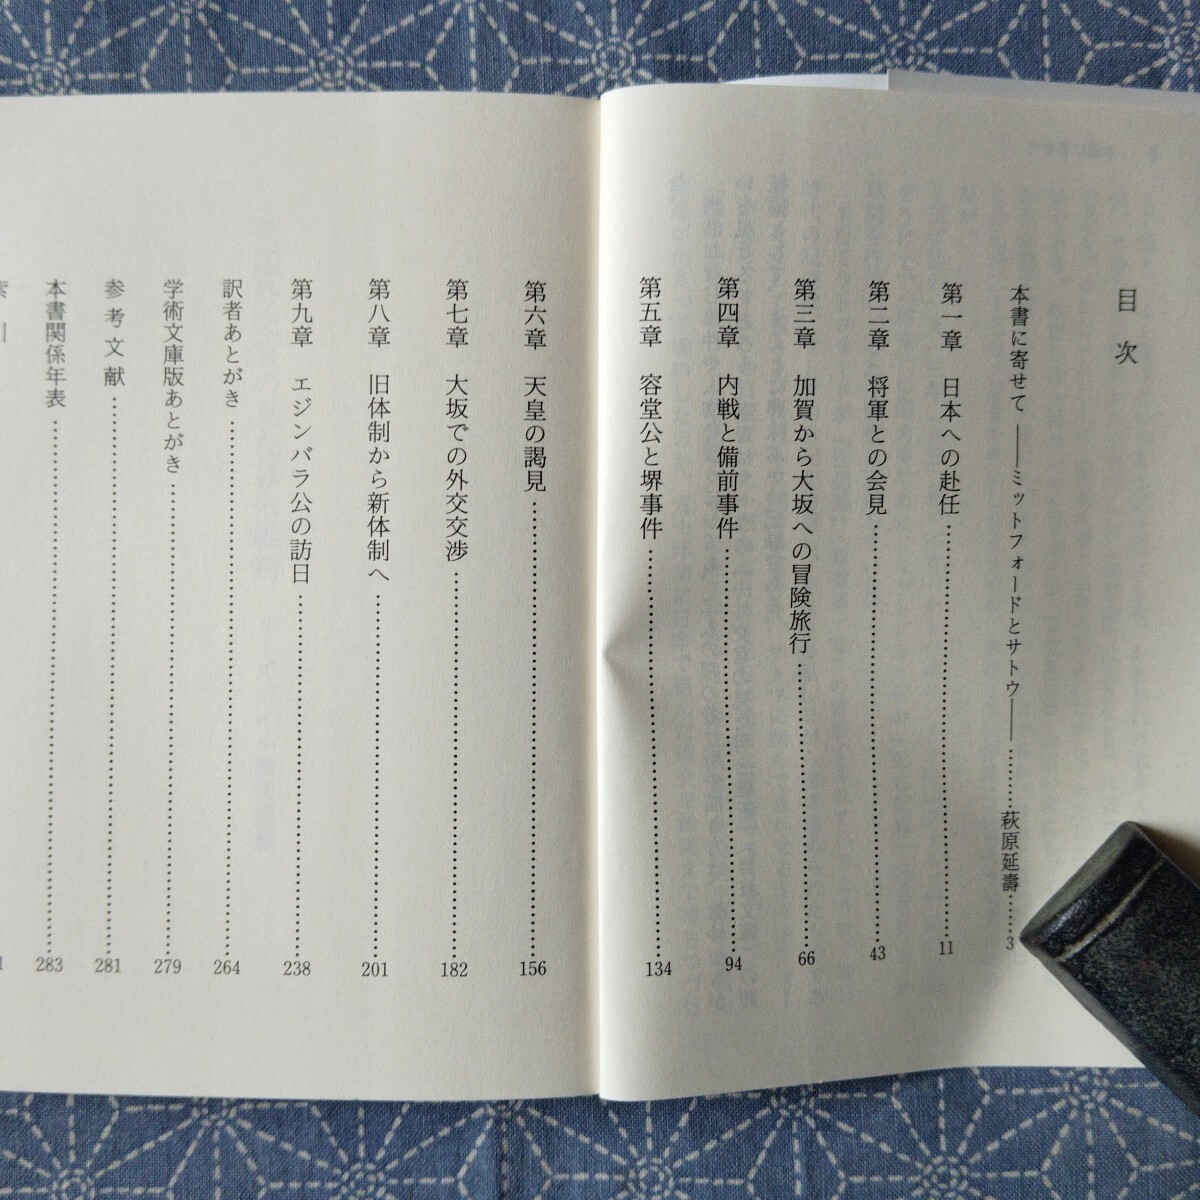 目次
本書に寄せて――ミットフォードとサトウ――………萩原延壽……3
第一章 日本への赴任……11
第二章 将軍との会見……43
第三章 加賀から大坂への冒険旅行……66
第四章 内戦と備前事件……94
第五章 容堂公と堺事件……134
第六章 天皇の謁見……156
第七章 大坂での外交交渉……182
第八章 旧体制から新体制へ……201
第九章 エジンバラ公の訪日……238
訳者あとがき……264
学術文庫版あとがき……279
参考文献……281
本書関係年表……283